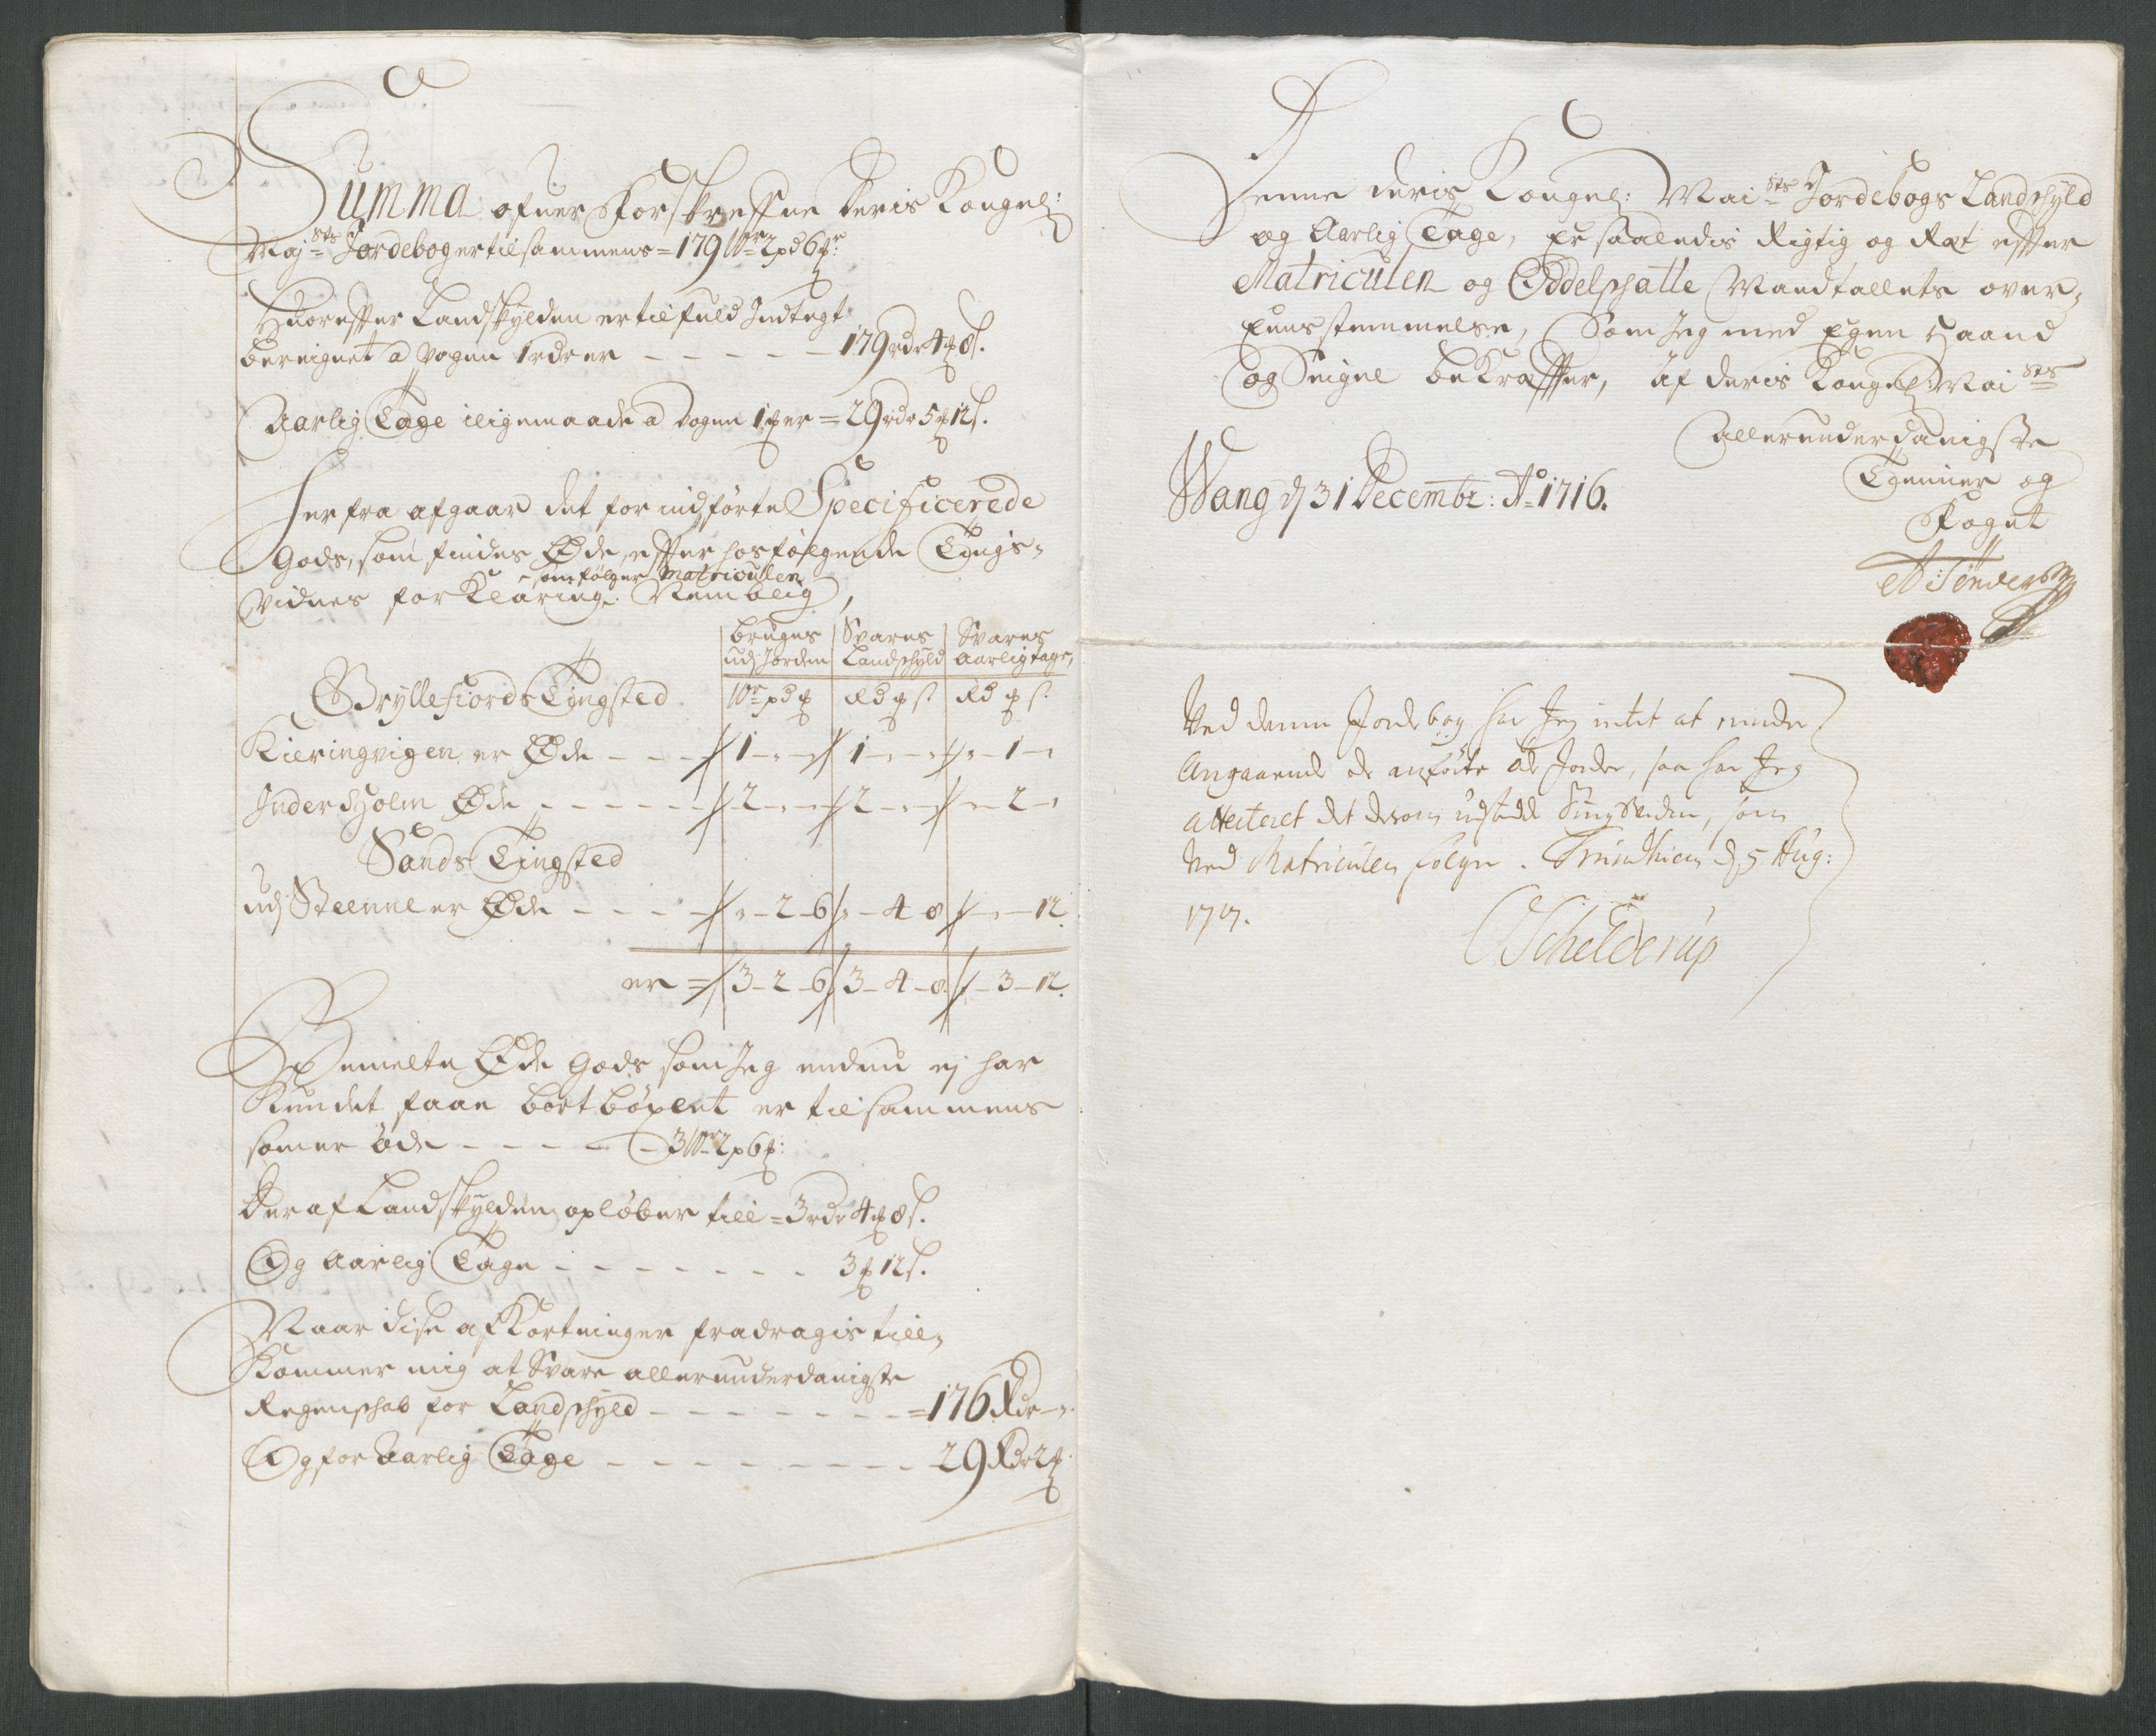 Summa ofuer Forskrefne Deris Kongel:
Maj.sts Jordebog er tilsammens = 179 Wr 2 pd 6 ℔r
Huorefter Landskylden er til fuld Indtegt
bereignet a vogen 1 rdr er - - - - - 179 rdr 4 ℔ 8 s.
Aarlig Tage iligemaade a vogen 1 ℔ er = 29 rdr 5 ℔ 12 s.
Herfra afgaar det for indførte Specificerede
Gods, som findes Øde, efter hosfølgende Tings-
som følger Matriculen
Vidnes forKlaring. Nemblig,
bruges Svares Svares
udj Jorden Landschyld Aarlig tage,
Gryllefiords Tingsted Wr pd ℔ Rd ℔ s. Rd ℔ s.
Kieringvigen er Øde - - - 1 - „ - „ 1 - „ - „ „ - 1 - „
Inder Holm Øde - - - - - - 2 - „ - „ 2 - „ - „ „ - 2 - „
Sands Tingsted
udj Steenne er Øde - - - - - „ - 2 - 6 „ - 4 - 8 „ - „ - 12.
er = 3 - 2 - 6 3 - 4 - 8 „ - 3 - 12.
Bemelte Øde Gods som Jeg endnu ej har
Kundet faae bortbøxlet er tilsammens
som er øde - - - - - 3 Wr 2 p 6 ℔:
Deraf Landskylden opløber till = 3 rdr 4 ℔ 8 s.
Og Aarlig Tage - - - - - - - 3 ℔ 12 s.
Naar disse afKortninger fradragis till-
Kommer mig at Svare allerunderdanigste
Regenschab for Landschyld - - - - - - - = 176 Rdr - „
Og for Aarlig Tage - - - - - - - - - 29 Rdr 2 ℔
Denne Deris Kongel: Mai.sts Jordebogs Landschyld
og Aarlig Tage, er saaledis Rigtig og Ræt efter
Matriculen og Oddelschatte Mandtallets over-
eensstemmelse, Som Jeg med Egen Haand
og Seigne beKræffter, af Deris Kongel: Mai.sts
allerunderdanigste
Tienner og
Foget
Wang d 31 Decembr: Ao 1716.
A: Tønder
Ved denne Jordebog har Jeg intet at minde
Angaaende de anførte øde Jorder, saa har Jeg
atteteret det derom udstædde Tingsvidne, som
ved Matriculen følger. Trundhiem d 5 Aug:
1717.
Schelderup